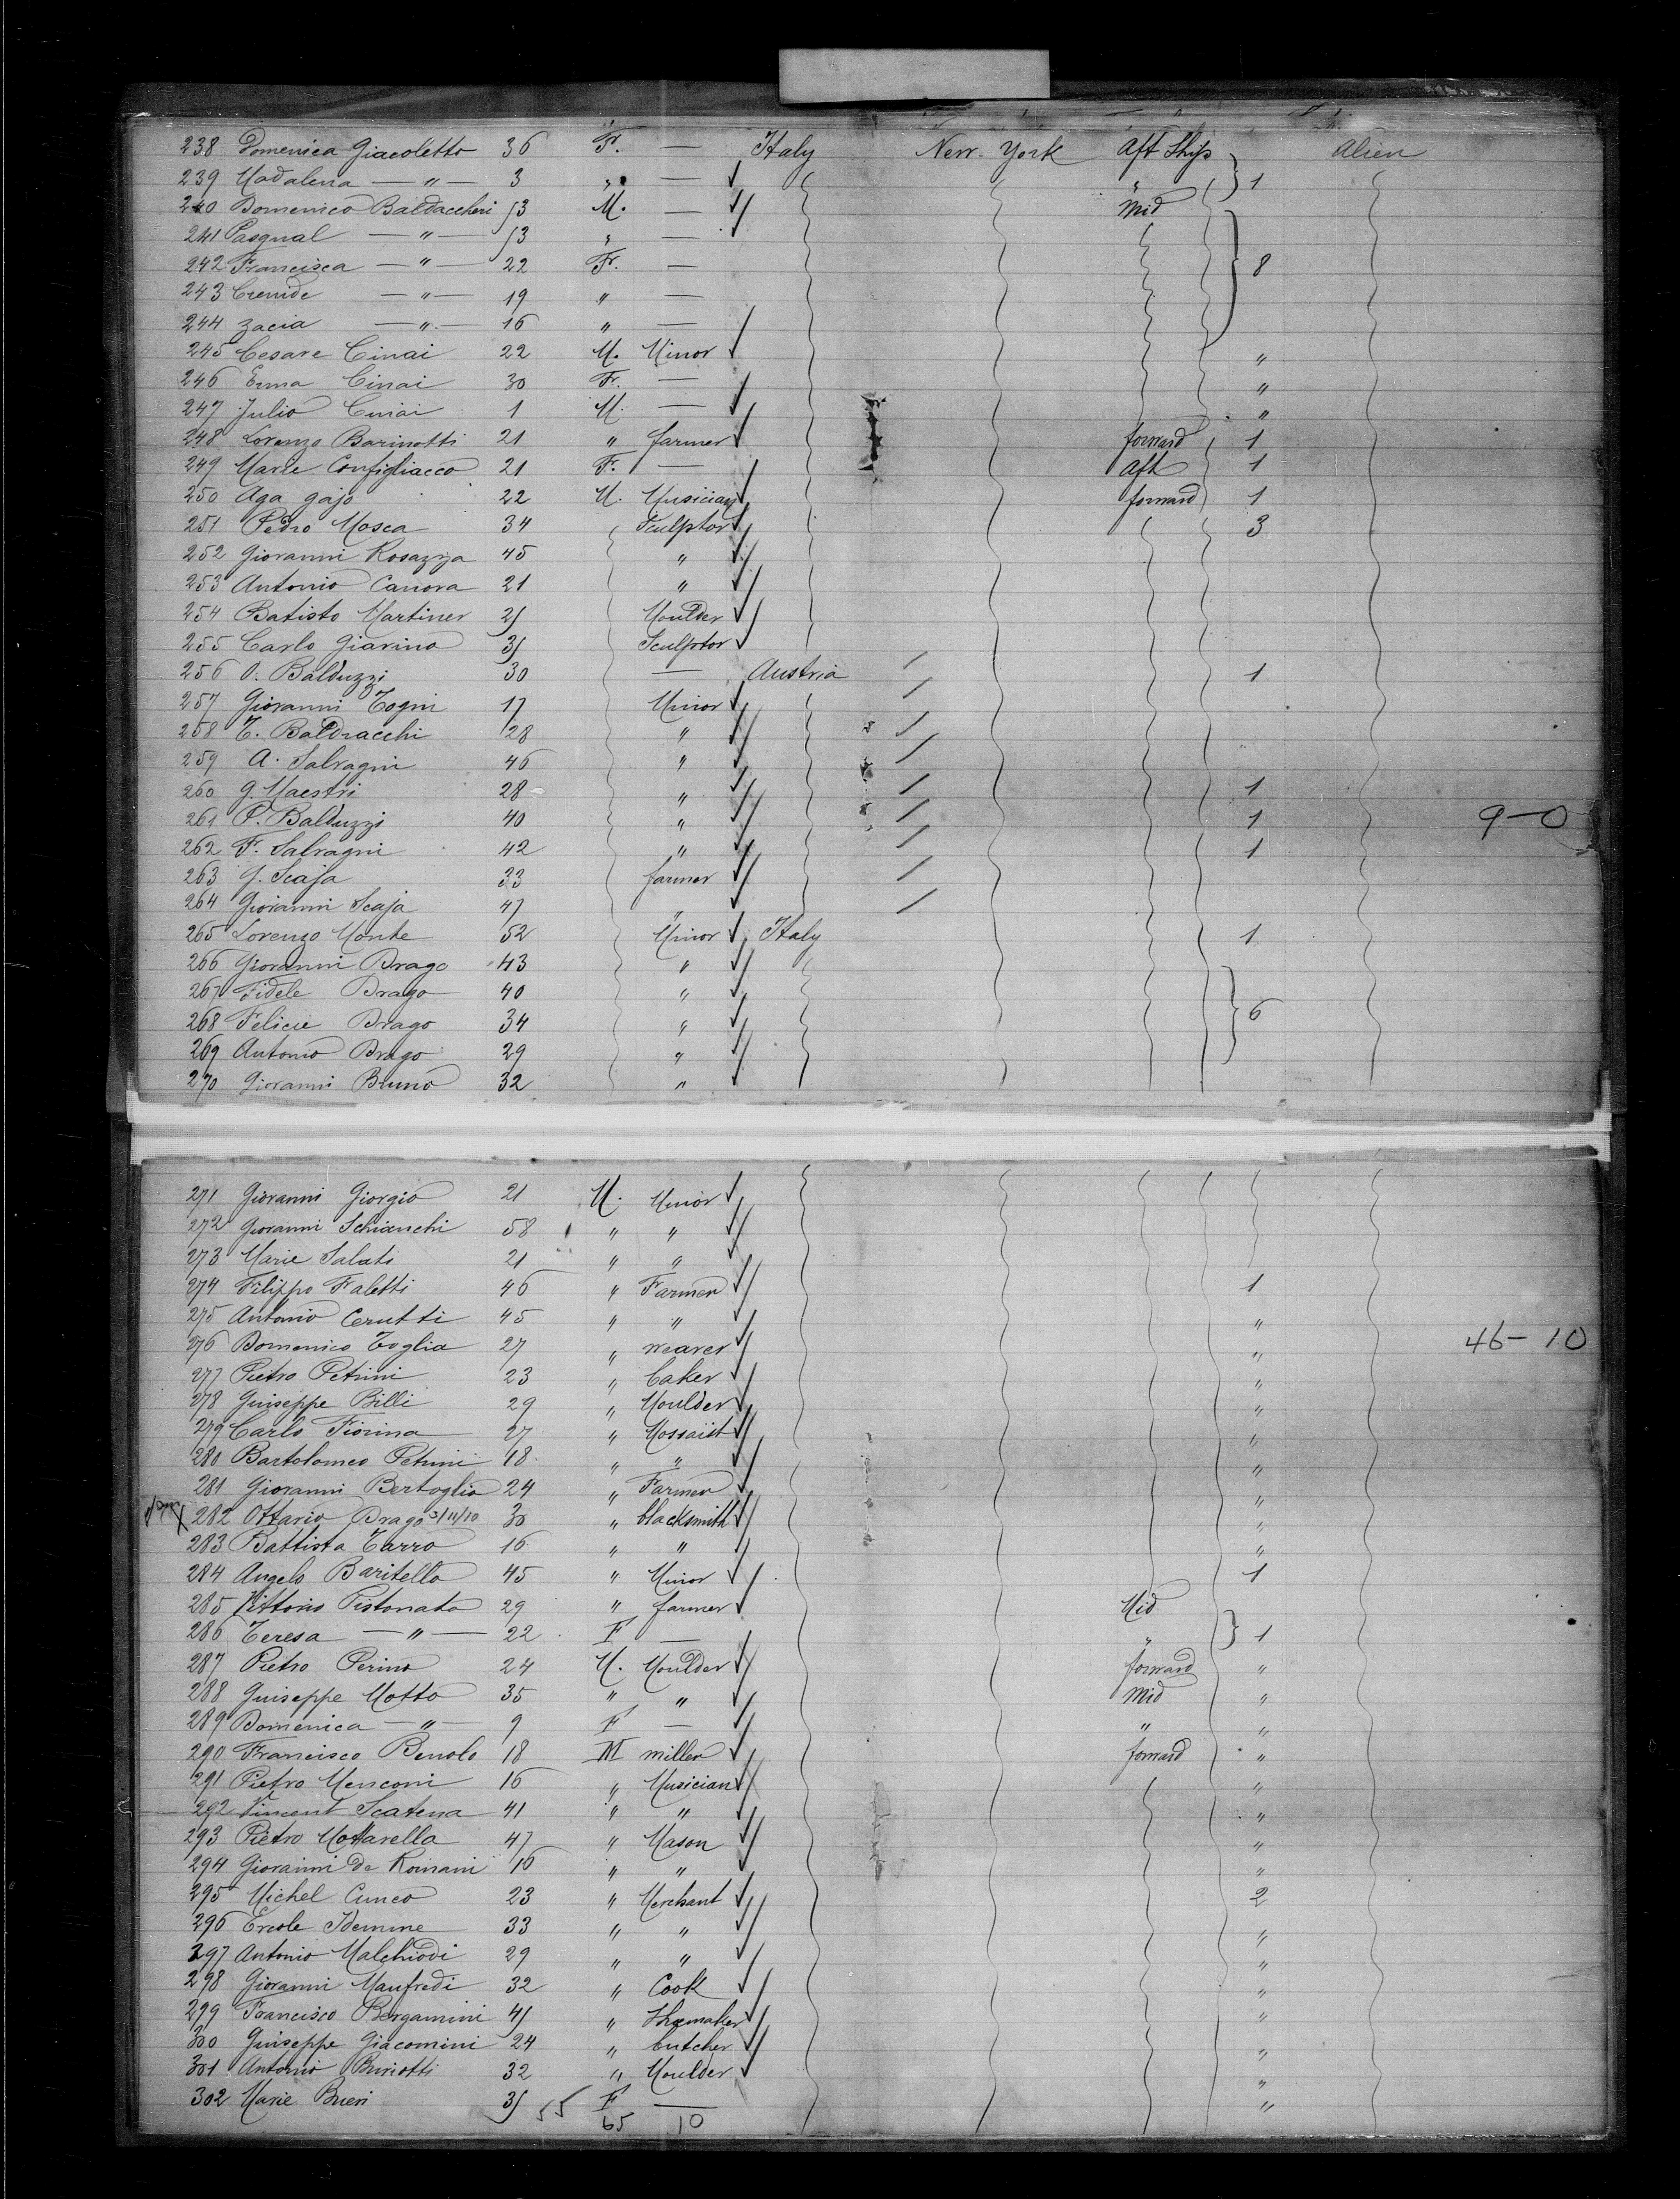 238 Domenica Giacoletto 36 Fr. — Italy New-York Aft Ship Alien
239 Madalena — " — 3 " — " 1
240 Domenico Baldaccheri 53 M. — Mid
241 Pasqual — " — 53 " —
242 Francisca — " — 22 Fr. — 8
243 — " — 19 " —
244 Zacia — " — 16 " —
245 Cesare Cinai 22 M. Minor "
246 Erma Cinai 30 Fr. — "
247 Julio Cinai 1 M. — "
248 Lorenzo Barinotti 21 " farmer forward 1
249 Marie Configliacco 21 F. — Aft 1
250 Aga gajo 22 M. Musician forward 1
251 Pedro Mosca 34 Sculptor 3
252 Giovanni Rosazza 45 "
253 Antonio Canova 21 "
254 Batisto Martiner 25 Moulder
255 Carlo Giarino 35 Sculptor
256 O. Balduzzi 30 — Austria 1
257 Giovanni Togni 17 Minor
258 T. Baldracchi 28 "
259 A. Salvagni 46 "
260 G. Maestri 28 " 1
261 P. Balduzzi 40 " 1 9-0
262 F. Salvagni 42 " 1
263 G. Scaja 33 farmer
264 Giovanni Scaja 47 "
265 Lorenzo Monte 52 Minor Italy 1
266 Giovanni Drago 43 "
267 Fidele Drago 40 "
268 Felicie Drago 34 " 6
269 Antonio Drago 29 "
270 Giovanni Bruno 32 "
271 Giovanni Giorgio 21 M. Minor
272 Giovanni Schianchi 58 " "
273 Marie Salati 21 " "
274 Filippo Faletti 46 " Farmer 1
275 Antonio Cerutti 45 " " "
276 Domenico Toglia 27 " weaver " 46-10
277 Pietro Petrini 23 " baker "
278 Guiseppe Billi 29 " Moulder "
279 Carlo Fiorina 27 " Mossaïst "
280 Bartolomeo Petrini 18 " " "
281 Giovanni Bertoglio 24 " Farmer "
282 Ottavio Drago 3/11/10 30 " blacksmith "
283 Battista Tarro 16 " " "
284 Angelo Baritello 45 " Minor 1
285 Vittorio Pistonato 29 " farmer Mid
286 Teresa — " — 22 F — " 1
287 Pietro Perino 24 M. Moulder forward "
288 Guiseppe Motto 35 " " Mid "
289 Domenica — " — 9 F — " "
290 Francisco Benolo 18 M miller forward "
291 Pietro Menconi 16 " Musician "
292 Vincent Scatena 41 " " "
293 Pietro Mottarella 47 " Mason "
294 Giovanni de Romani 16 " " "
295 Michel Cuneo 23 " Merchant 2
296 Ercole 33 " " "
297 Antonio Malchiodi 29 " " "
298 Giovanni Manfredi 32 " Cook "
299 Francisco Bergamini 45 " Shoemaker "
300 Guiseppe Giacomini 24 " butcher "
301 Antonio 32 " Moulder "
302 Marie Bueri 35 F — "
55 65 10